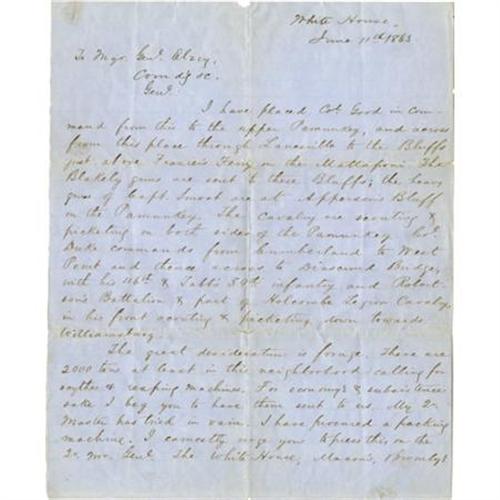 White House,
June 11th 1863.
To Majr. Genl. Elzey,
Comdg &c.
Genl.
I have placed Col. Good in com-
mand from this to the upper Pamunkey, and across
from this place through Lanesville to the Bluffs
just above Francis's Ferry on the Mattaponi. The
Blakely guns are sent to these Bluffs; the heavy
guns of Capt. Smoot are at Apperson's Bluff
on the Pamunkey. The Cavalry are scouting &
picketing on both sides of the Pamunkey. Col.
Duke commands from Cumberland to West
Point and thence across to Diascund Bridge,
with his 46th & Tabb's 59th infantry and Robert-
son's Battalion & part of Holcombe Legion Cavalry,
in his front scouting & picketing down towards
Williamsburg.
The great desideratum is forage. There are
2000 tons at least in this neighborhood calling for
scythes & reaping machines. For economy's & subsistence
sake I beg you to have them sent to us. My Qr.
Master has tried in vain. I have procured a packing
machine. I earnestly urge you to press this on the
Qr. Mr. Genl. The White House, Macon's,